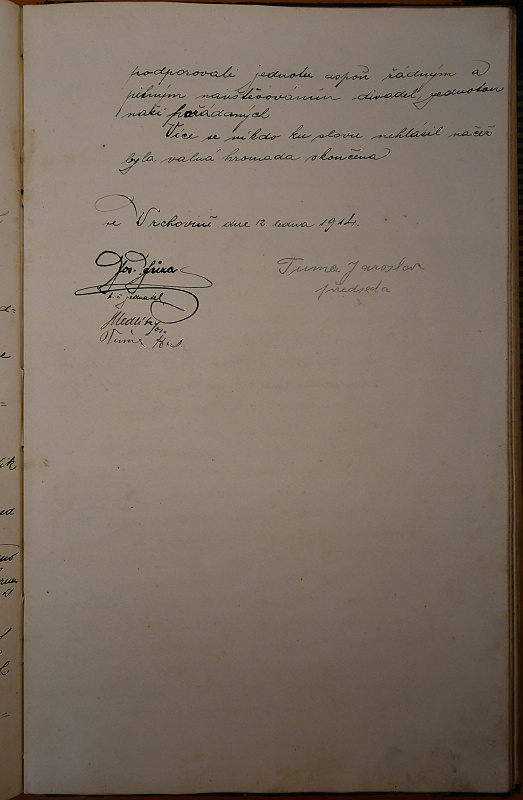 podporovali jednotu aspoň řádným a
pilným navštěvováním divadel, jednotou
naší pořádaných
Více se nikdo ku slovu nehlásil načež
byla valná hromada skončena
ve Vrchovině dne 12. ledna 1914.
Jos.
t. č. jednatel
Tuma Jaroslav
předseda
Jos.
Tuma